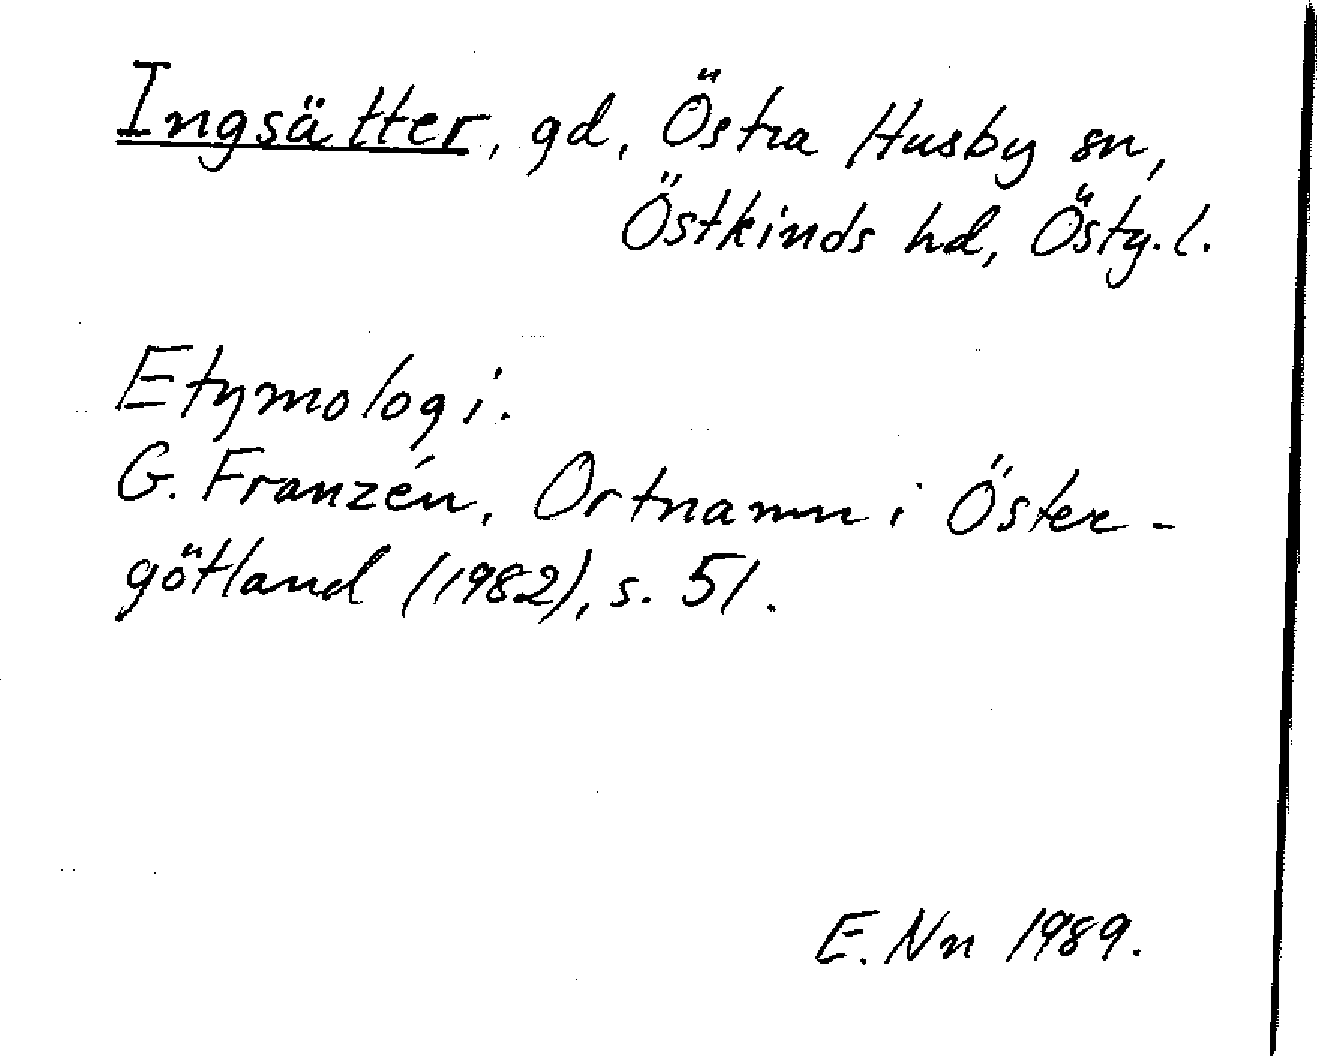 Ingsätter, gd, Östra Husby sn,
Östkinds hd, Östg.l.
Etymologi.
G. Franzén, Ortnamn i Öster-
götland (1982), s. 51.
E. Nn 1989.